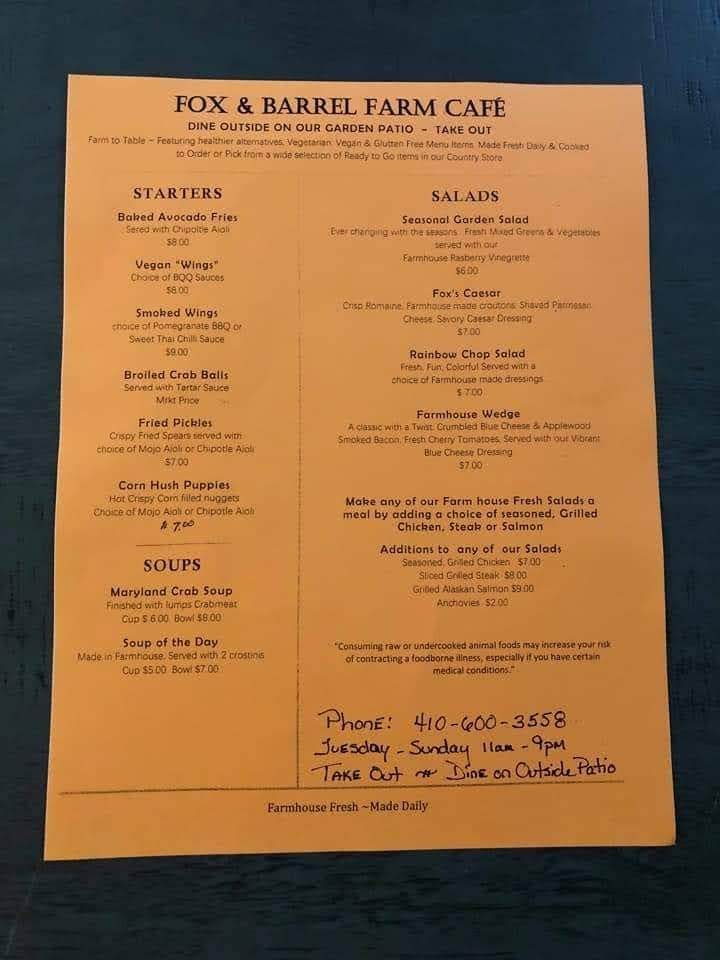 FOX & BARREL FARM CAFÉ
DINE OUTSIDE ON OUR GARDEN PATIO - TAKE OUT
Farm to Table ~ Featuring healthier alternatives, Vegetarian, Vegan & Glutten Free Menu Items. Made Fresh Daily & Cooked
to Order or Pick from a wide selection of Ready to Go items in our Country Store
STARTERS
Baked Avocado Fries
Sered with Chipoltle Aioli
$8.00
Vegan "Wings"
Choice of BQQ Sauces
$8.00
Smoked Wings
choice of Pomegranate BBQ or
Sweet Thai Chilli Sauce
$9.00
Broiled Crab Balls
Served with Tartar Sauce
Mrkt Price
Fried Pickles
Crispy Fried Spears served with
choice of Mojo Aioli or Chipotle Aioli
$7.00
Corn Hush Puppies
Hot Crispy Corn filled nuggets
Choice of Mojo Aioli or Chipotle Aioli
$ 7.00
SOUPS
Maryland Crab Soup
Finished with lumps Crabmeat
Cup $ 6.00 Bowl $8.00
Soup of the Day
Made in Farmhouse, Served with 2 crostinis
Cup $5.00 Bowl $7.00
SALADS
Seasonal Garden Salad
Ever changing with the seasons. Fresh Mixed Greens & Vegetables
served with our
Farmhouse Rasberry Vinegrette
$6.00
Fox's Caesar
Crisp Romaine, Farmhouse made croutons, Shaved Parmesan
Cheese, Savory Caesar Dressing
$7.00
Rainbow Chop Salad
Fresh, Fun, Colorful Served with a
choice of Farmhouse made dressings
$ 7.00
Farmhouse Wedge
A classic with a Twist, Crumbled Blue Cheese & Applewood
Smoked Bacon, Fresh Cherry Tomatoes, Served with our Vibrant
Blue Cheese Dressing
$7.00
Make any of our Farm house Fresh Salads a
meal by adding a choice of seasoned, Grilled
Chicken, Steak or Salmon
Additions to any of our Salads
Seasoned, Grilled Chicken $7.00
Sliced Grilled Steak $8.00
Grilled Alaskan Salmon $9.00
Anchovies $2.00
"Consuming raw or undercooked animal foods may increase your risk
of contracting a foodborne illness, especially if you have certain
medical conditions."
Phone: 410-600-3558
Tuesday - Sunday 11am - 9pm
Take Out Dine on Outside Patio
Farmhouse Fresh ~Made Daily